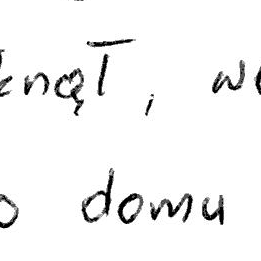 knął, w
o domu